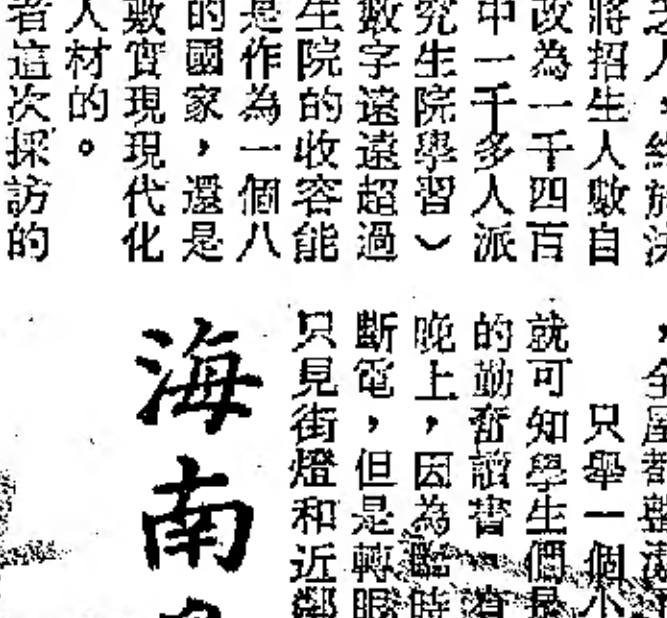 將招生人數自
改為一千四百
中一千多人派
究生院學習）
數字遠遠超過
生院的收容能
是作為一個八
的國家，還是
數實現現代化
人材的。
者這次採訪的
，全屋都整潔
只舉一個小
就可知學生們是
的勤奮讀書。有
晚上，因為臨時
斷電，但是轉眼
只見街燈和近鄰
海南